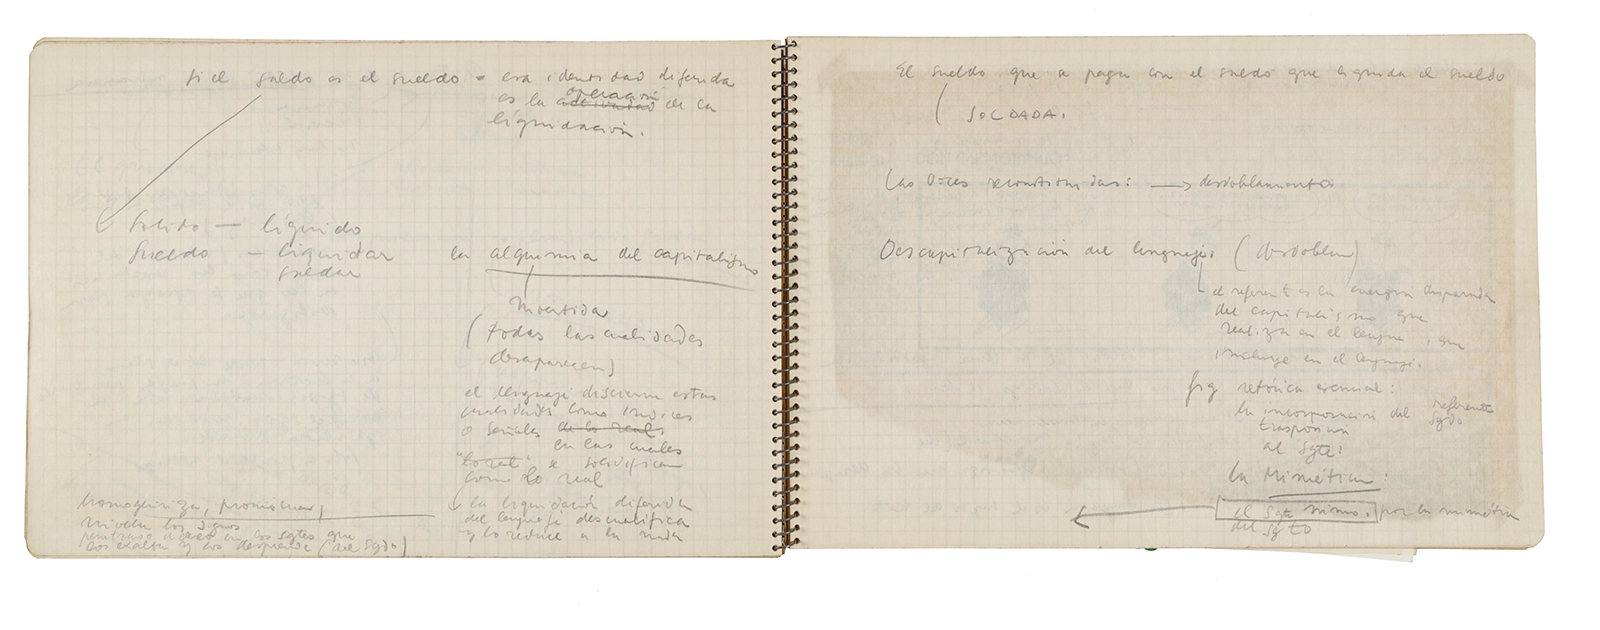 si el saldo es el sueldo = esa identidad diferida
operación
es la actividad de la
liquidación.
Sólido — líquido
Sueldo — liquidar
saldar
la alquimia del capitalismo
invertida
(todas las cualidades
desaparecen)
el lenguaje discierne estas
cualidades como índices
o señales de lo real.
en las cuales
"lo real" se solidifican
como lo real
la liquidación diferida
del lenguaje descualifica
y lo reduce a la nada
homogeiniza,
nivela los signos
en los sgtes que
los exaltan y los desprende (del sgdo)
El sueldo que se paga con el saldo que liquida el sueldo
SOLDADA.
Las reconstituidas: → desdoblamiento
Descapitalización del lenguaje: (desdoblan)
el referente es la energía
del capitalismo que
realiza en el lengua, que
en el lenguaje.
fig retórica esencial:
la incorporación del referente
sgdo
trasposición
al sgte:
la Mimética:
el Sgte mismo. por la mimética
del sgto